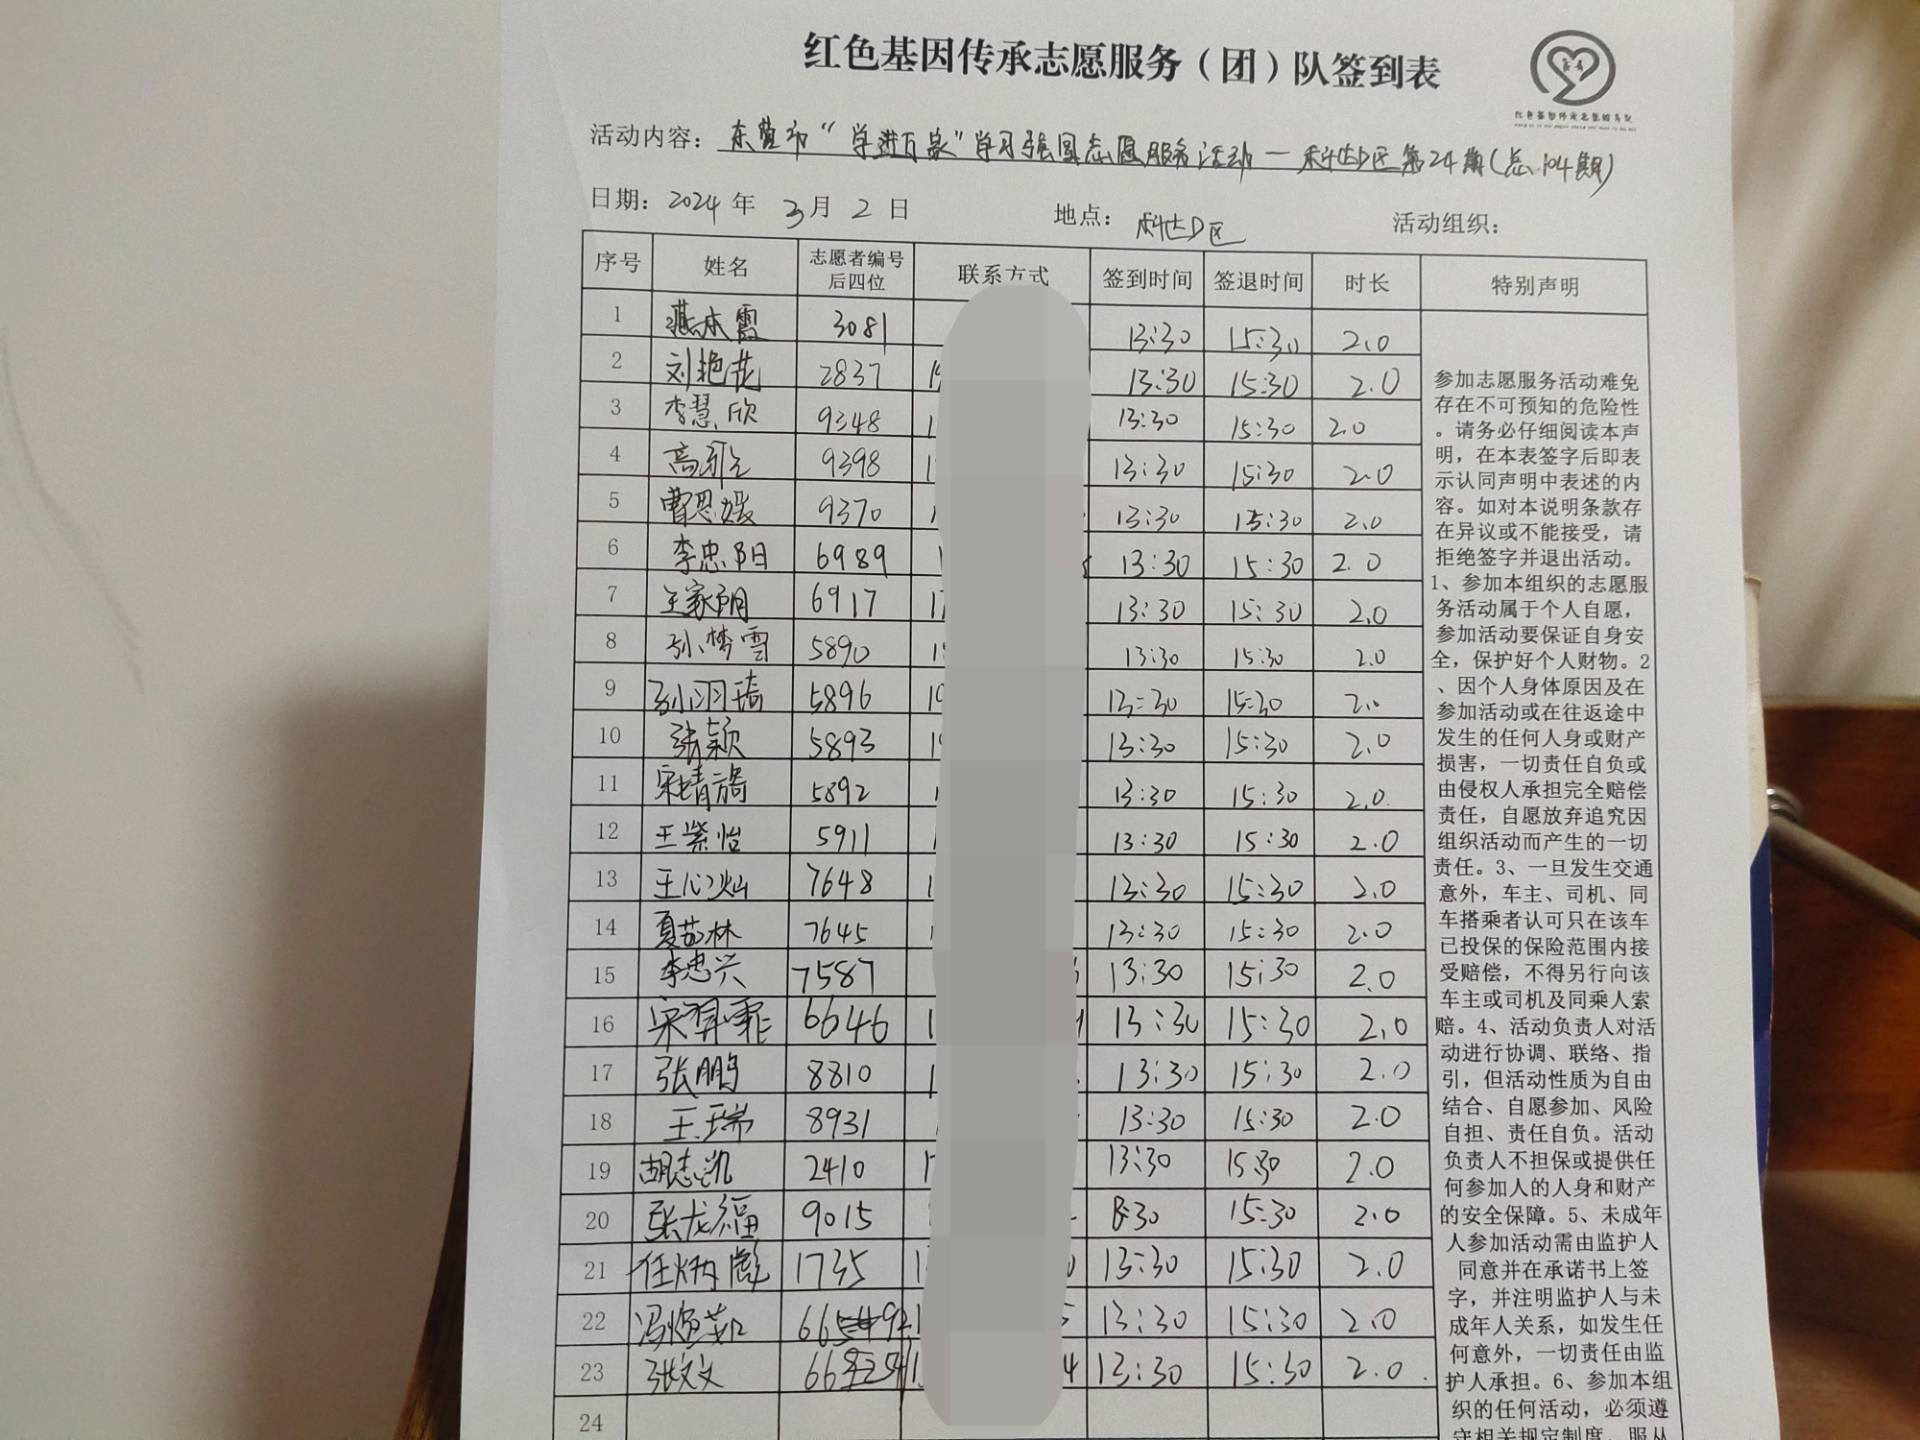 红色基因传承志愿服务（团）队签到表
活动内容：东营市“学进百家”学习强国志愿服务活动一科达D区第24期（总104期）
日期：2024年 3月 2日 地点：科达D区 活动组织：
序号 姓名 志愿者编号后四位 联系方式 签到时间 签退时间 时长 特别声明
1 燕本霞 3081 13:30 15:30 2.0
2 刘艳花 2837 13:30 15:30 2.0
3 李慧欣 9348 13:30 15:30 2.0
4 9398 13:30 15:30 2.0
5 曹思媛 9370 13:30 15:30 2.0
6 李忠阳 6989 13:30 15:30 2.0
7 王家朋 6917 13:30 15:30 2.0
8 孙梦雪 5890 13:30 15:30 2.0
9 孙羽琦 5896 13:30 15:30 2.0
10 张颖 5893 13:30 15:30 2.0
11 宋婧旖 5892 13:30 15:30 2.0
12 王紫怡 5911 13:30 15:30 2.0
13 王心灿 7648 13:30 15:30 2.0
14 夏茹林 7645 13:30 15:30 2.0
15 李忠兴 7587 13:30 15:30 2.0
16 宋羿霏 6646 13:30 15:30 2.0
17 张鹏 8810 13:30 15:30 2.0
18 王瑞 8931 13:30 15:30 2.0
19 胡志凯 2410 13:30 15:30 2.0
20 张龙福 9015 15:30 2.0
21 任炳彪 1735 13:30 15:30 2.0
22 13:30 15:30 2.0
23 张文文 13:30 15:30 2.0
24
参加志愿服务活动难免
存在不可预知的危险性
。请务必仔细阅读本声
明，在本表签字后即表
示认同声明中表述的内
容。如对本说明条款存
在异议或不能接受，请
拒绝签字并退出活动。
1、参加本组织的志愿服
务活动属于个人自愿，
参加活动要保证自身安
全，保护好个人财物。2
、因个人身体原因及在
参加活动或在往返途中
发生的任何人身或财产
损害，一切责任自负或
由侵权人承担完全赔偿
责任，自愿放弃追究因
组织活动而产生的一切
责任。3、一旦发生交通
意外，车主、司机、同
车搭乘者认可只在该车
已投保的保险范围内接
受赔偿，不得另行向该
车主或司机及同乘人索
赔。4、活动负责人对活
动进行协调、联络、指
引，但活动性质为自由
结合、自愿参加、风险
自担、责任自负。活动
负责人不担保或提供任
何参加人的人身和财产
的安全保障。5、未成年
人参加活动需由监护人
同意并在承诺书上签
字，并注明监护人与未
成年人关系，如发生任
何意外，一切责任由监
护人承担。6、参加本组
织的任何活动，必须遵
守相关规定制度，服从